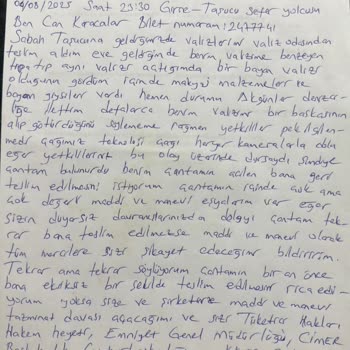 04/08/2025 Saat 23:30 Girne-Taşucu sefer yolcusu
Ben Can Karacalar Bilet numaram: 2477741
Sabah Taşucuna geldiğimizde valizlerimi valiz odasından
teslim aldım eve geldiğimde benim valizime benzeyen
tıpa tıp aynı valizi açtığımda bir bayan valizi
olduğunu gördüm içinde makyaj malzemeleri ve
bayan giysileri vardı hemen durumu Akgünler deniz
iliğe ilettim defalarca benim valizimi bir başkasının
alıp götürdüğünü söylememe rağmen yetkililer pek ilgilen-
medi çağımız teknoloji çağı her yer kameralarla dolu
eğer yetkilileriniz bu olay üzerinde dursaydı şimdiye
çantam bulunurdu benim çantamın acilen bana geri
teslim edilmesini istiyorum çantamın içinde çok ama
çok değerli maddi ve manevi eşyalarım var eğer
sizin duyarsız davranışlarınızda dolayı çantam tek-
rar bana teslim edilmezse maddi ve manevi olarak
tüm mercilere sizi şikayet edeceğimi bildiririm.
Tekrar ama tekrar söylüyorum çantamın bir an önce
bana eksiksiz bir şekilde teslim edilmesini rica edi-
yorum yoksa size ve şirketinize maddi ve manevi
tazminat davası açacağımı ve sizi Tüketici Hakları
Hakem heyeti, Emniyet Genel Müdürlüğü, CİMER